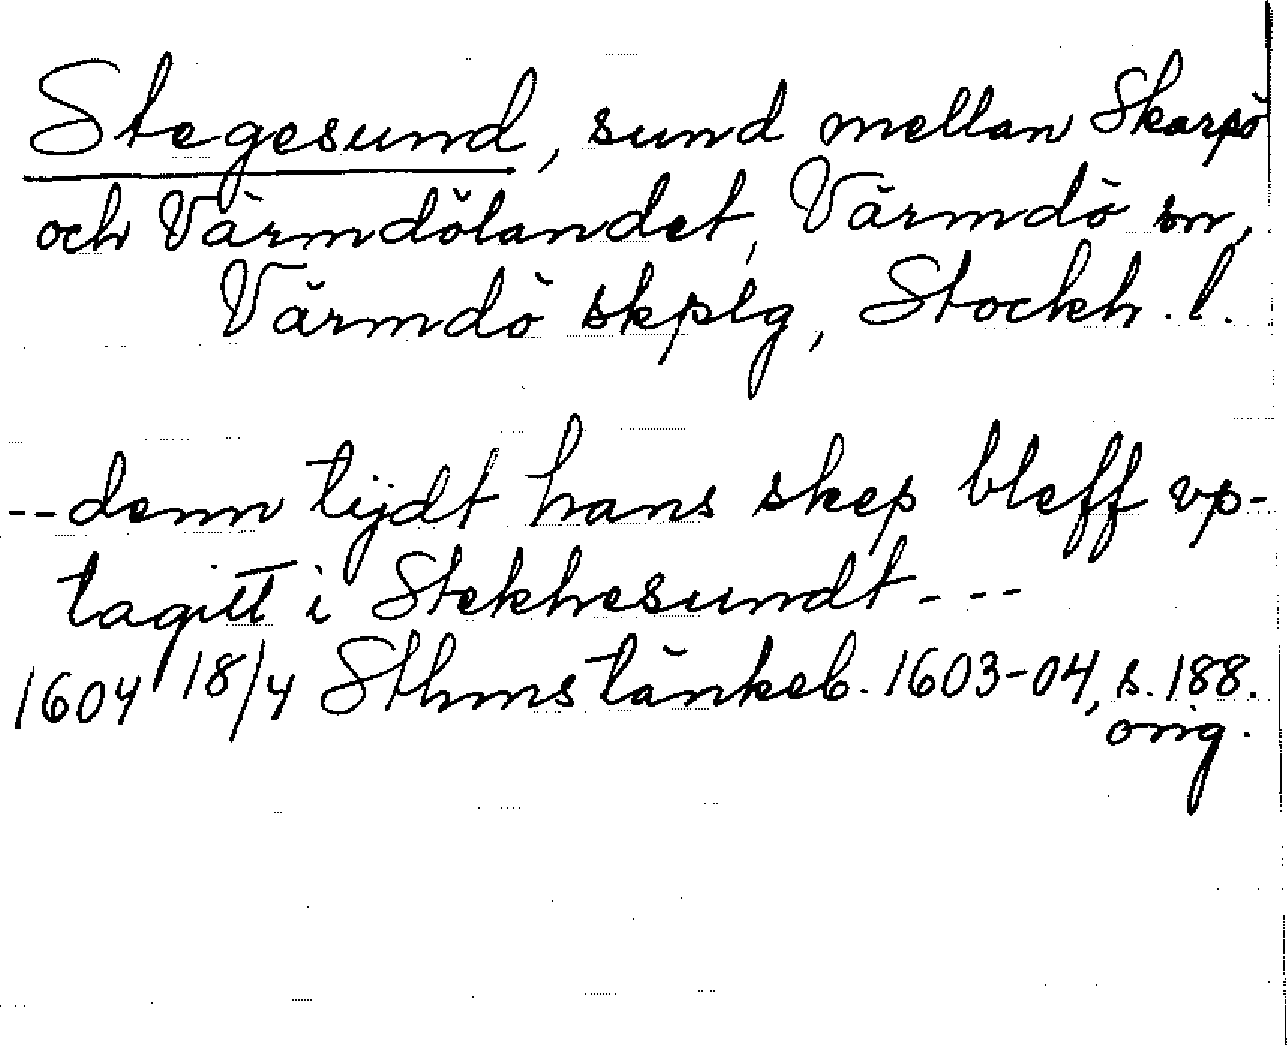 Stegesund, sund mellan Skarpö
och Värmdölandet, Värmdö sn,
Värmdö skplg, Stockh. l.
-- denn tijdt hans skep bleff vp-
tagitt i Stekhesundt - - -
1604 18/4 Sthms tänkeb. 1603-04, s. 188.
orig.